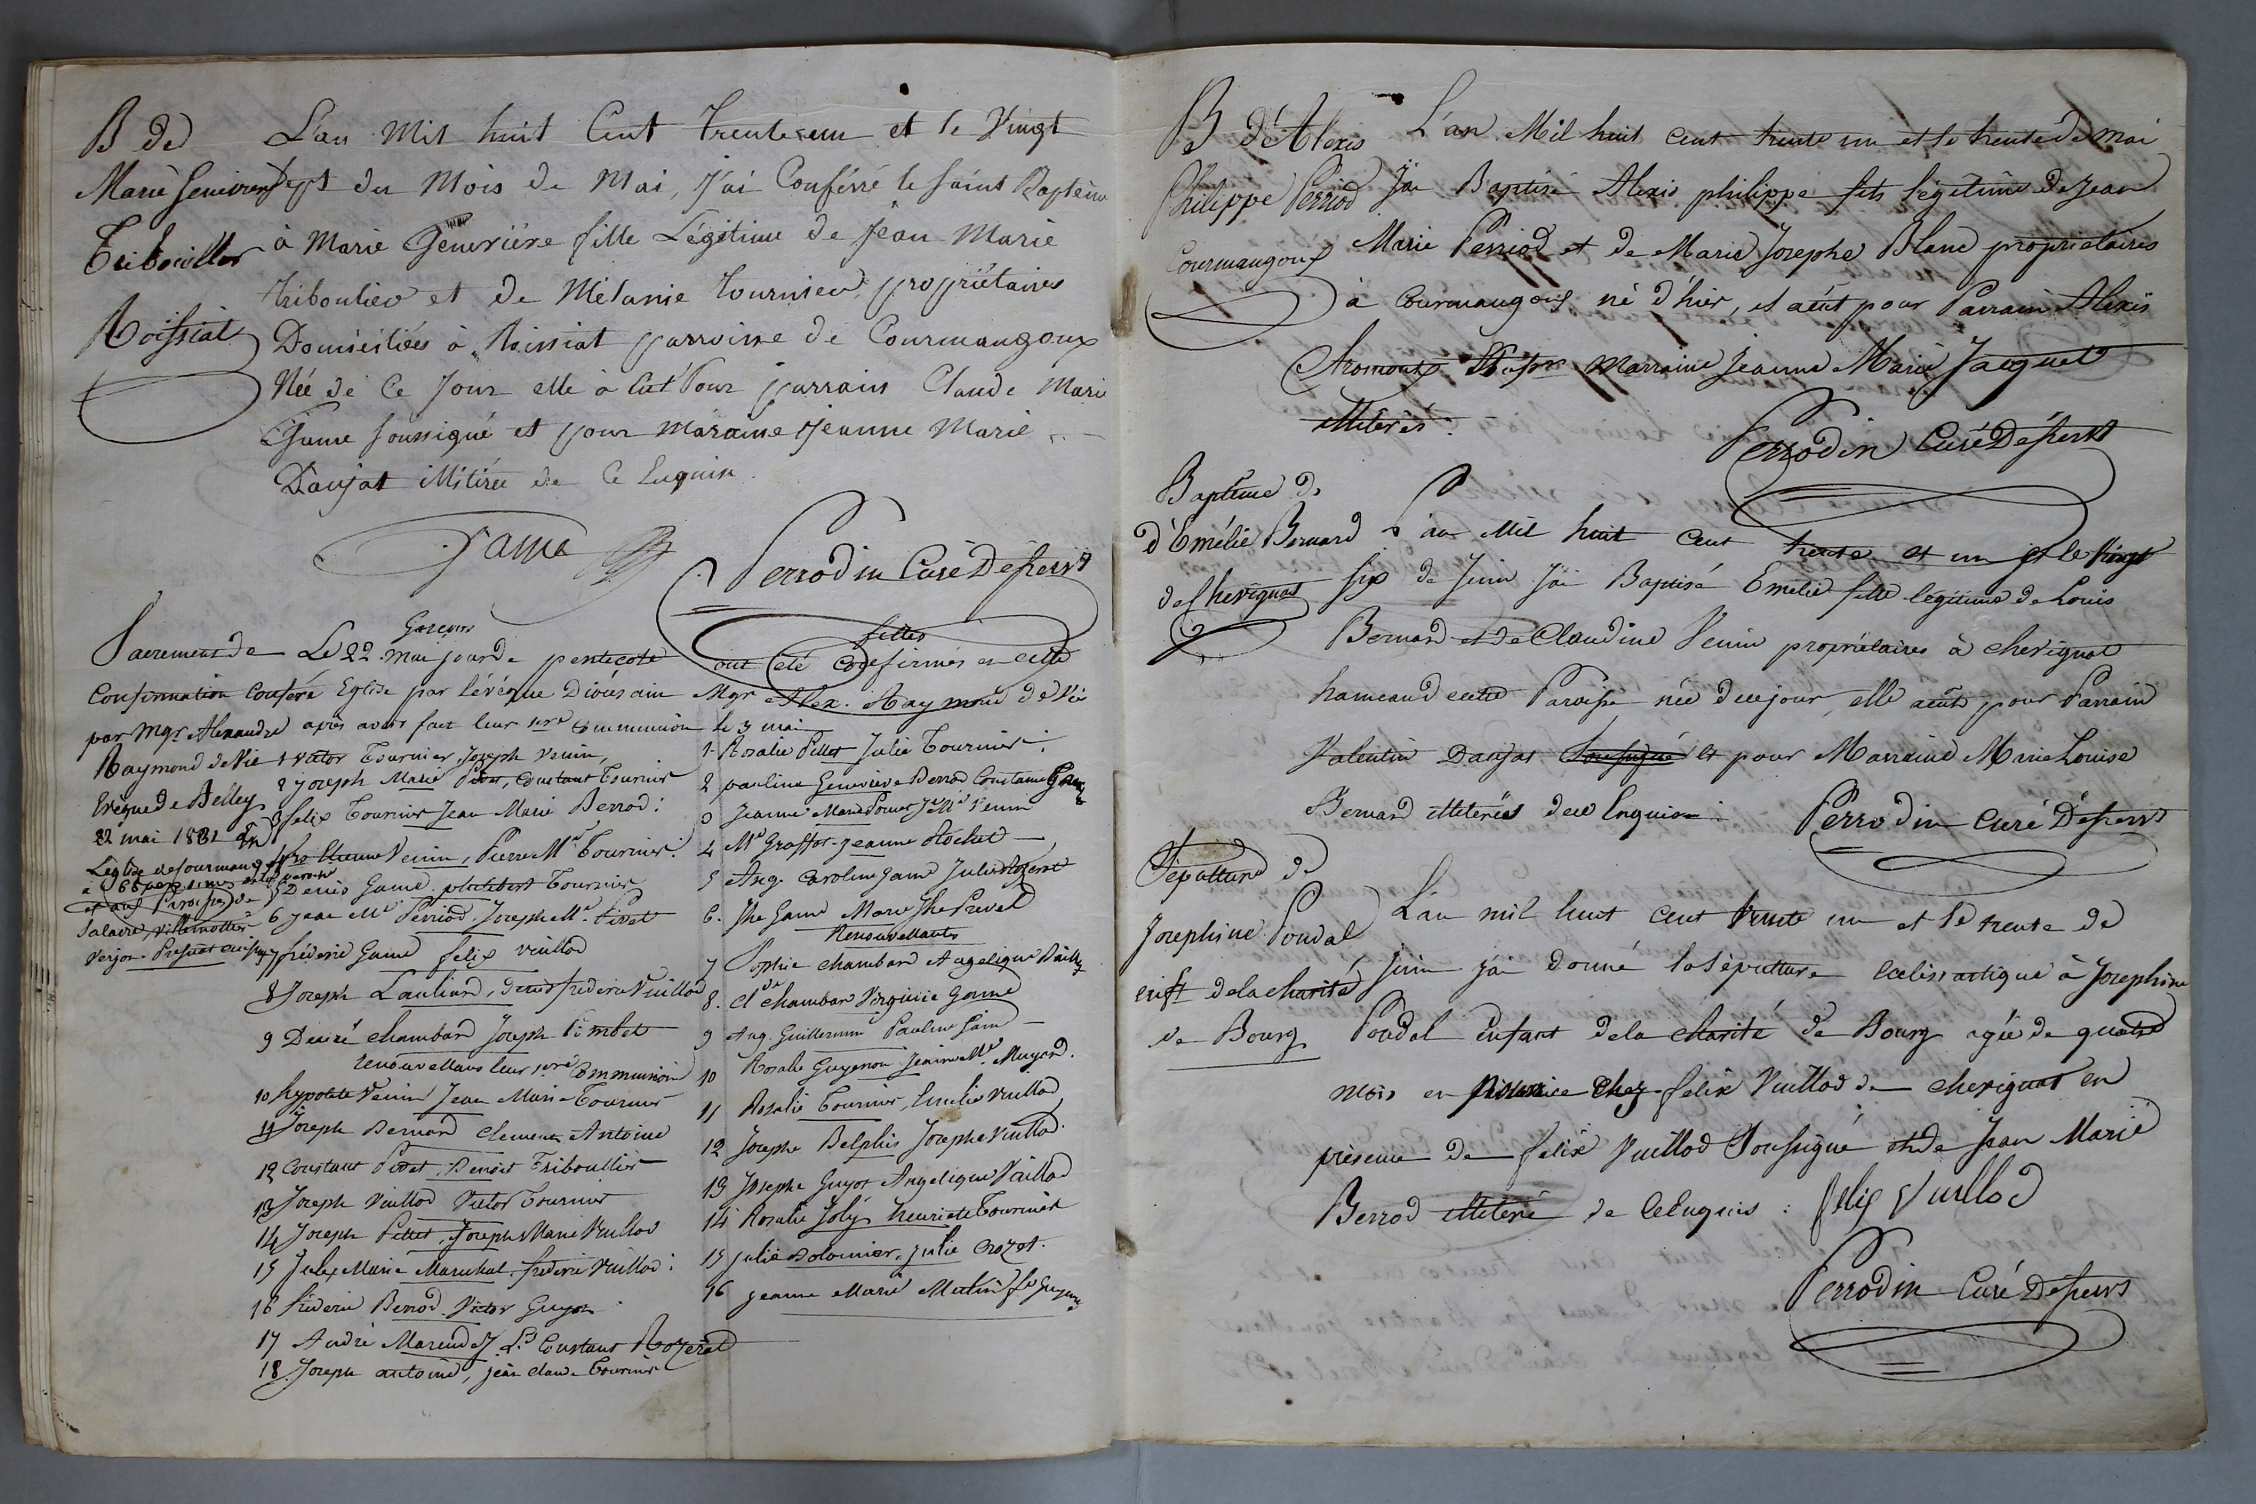 B de
Marie Genevieve
Tribouiller
Roissiat
L'an Mil huit Cent trente un et le Vingt
Sept du Mois de Mai, J'ai Conférré le Saint Baptême
à Marie Geneviére fille Légitime de Jean Marie
tribouliev et de Mélanie tournier propriétaires
Domiciliées à Roissiat parroisse de Courmangoux
Née de Ce Jour elle à Eut Pour parrain Claude Marie
Game Soussigné et pour maraine Jeanne Marie
Daujat illitirée de Ce Enquise
Game
Perrodin Curé Desserv
Sacrement de
Confirmation Conféré
par Mgr Alexandre
Raymond deVie
Evêque de Belley
22 mai 1831 En
L'église de Courmang
Salaire, villemotier
Verjon
Garçons
filles
Le 22 mai jour de pentecote ont été confirmés en cette
Eglise par l'évêque Diocésain Mgr Alex. Raymond de Vie
après avoir fait leur 1ere Communion le 3 mai
1 victor Tournier, Joseph Venin
2 joseph Marie Pivet, Constant Tournier
3 felix Tournier Jean Marie Berrod :
Etienne Venin, Pierre Me Tournier.
5 Denis Game. philibert Tournier
6 jean Me Perriod. Joseph Me. Pivet
7 fréderic Game felix vuillod
8 Joseph Lauliard, frederic Vuillod
9 Desiré Chambard Joseph Pimbet
renouvellans leur 1ere Communion
10 hypolite Venin Jean Marie Tournier
11 Joseph Bernard Clement Antoine
12 Constant Pivet, Benoit Triboullier
13 Joseph Vuillod Victor Tournier
14 Joseph Pillet, Joseph Marie Vuillod
15 Marie Marechal. frederic Vuillod :
16 fréderic Berrod Victor Guyon
17 André Ls Constant Rozerat
18 Joseph antoine, jean claude Tournier
1 Rosalie Pillet Julie Tournier :
2 pauline Genevieve Berrod Constance
3 Jeanne Marie Venin
4 Me Graffot jeanne Rochet
5 Ang. Caroline Game Julie
6. Jhe Game Marie Jhe Prevel
Renouvellants
7 Sophie Chambard Angelique
8. Chambard Virginie Game
9 Ang. Guillermin Pauline Game
10 Rosalie Guyenon Jeanne Me Muyard.
11 Rosalie Tournier, Emilie Vuillod
12 Josephe Delphis Josephe Vuillod.
13 Josephe Guyot Angelique Vuillod
14 Rosalie Joly henriete Tournier
15 julie Dolomier, julie Crozet.
16 jeanne Marie
B d'Alexis
Philippe Perriod
Courmangoux
L'an Mil huit cent trente un et le trente de mai
J'ai Baptisé Alexis philippe fils légitime de Jean
Marie Perriod et de Marie Josephe Blanc propriétaires
à Courmangoux né d'hier, il aeût pour Parrain Alexis
Aromont marraine Jeanne Marie Jacquet
illiterés.
Perrodin Curé Desserv
Baptême de
d'Emélie Bernard
de Chevignat
L'an Mil huit cent trente et un et le Vingt
six de Juin J'ai Baptisé Emélie fille légitime de Louis
Bernard et de Claudine Venin propriétaires à chevignat
hameau de cette Paroisse née de ce jour, elle aeût pour Parrain
Valentin Daujat Soussigné et pour Marraine Marie Louise
Bernard illiterées de ce Enquise :
Perrodin Curé Desserv
Sépulture de
Josephine Poudal
enft dela charité
de Bourg
L'an mil huit cent trente un et le trente de
juin j'ai donné la Sépulture à Josephine
Poudal Enfant dela charité de Bourg agée de quatre
mois en nourrice chez felix Vuillod de chevignat en
présence de felix Vuillod Soussigné et de Jean Marie
Berrod illiteré de ce Enquis : felix Vuillod
Perrodin Curé Desserv